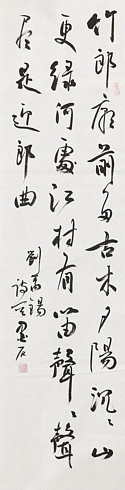 竹郎廟前多古木夕陽沉〻山
更緑何處江村有笛聲〻聲
尽是迎郎曲
劉禹錫
詩